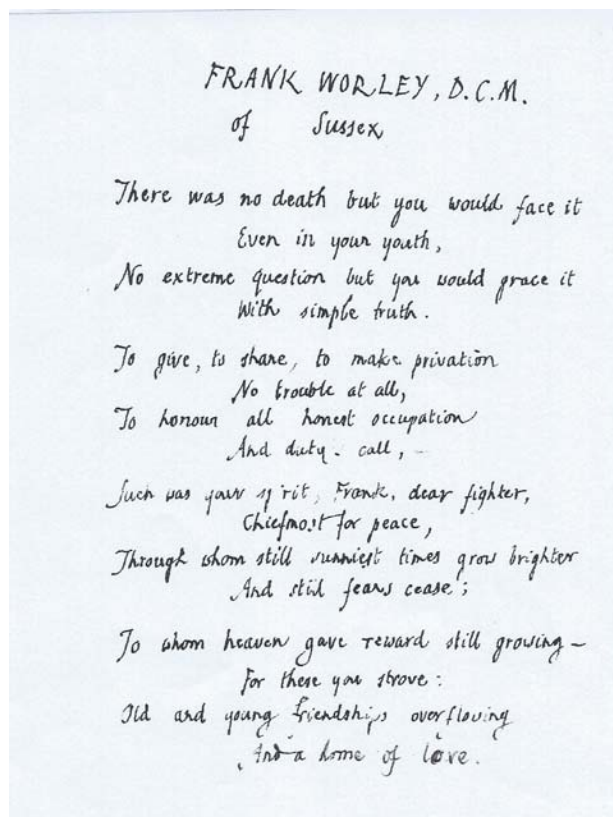 FRANK WORLEY, D.C.M.
of Sussex
There was no death but you would face it
Even in your youth,
No extreme question but you would grace it
With simple truth.
To give, to share, to make privation
No trouble at all,
To honour all honest occupation
And duty-call, –
Such was your spirit, Frank, dear fighter,
Chiefmost for peace,
Through whom still sunniest times grow brighter
And still fears cease;
To whom heaven gave reward still growing –
For these you strove:
Old and young friendships overflowing
And a home of love.